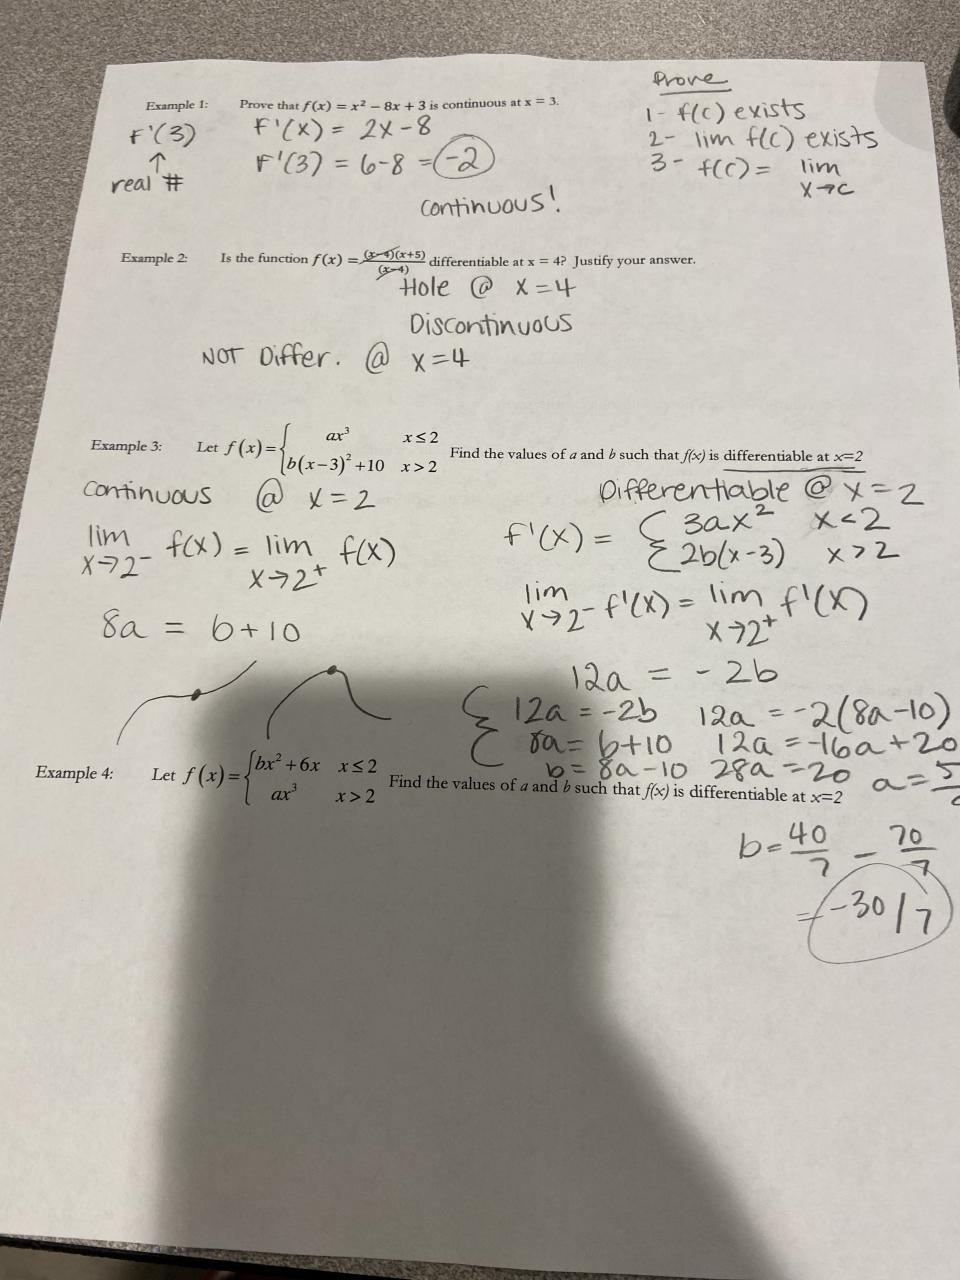 Prove
Example 1: Prove that f(x) = x² − 8x + 3 is continuous at x = 3.
1- f(c) exists
F'(3) F'(x) = 2x-8
2- lim f(c) exists
↑ F'(3) = 6-8 = -2
3- f(c) = lim
x→c
real #
Continuous!
Example 2: Is the function f(x) = (x−4)(x+5)/(x−4) differentiable at x = 4? Justify your answer.
Hole @ x=4
Discontinuous
NOT Differ. @ x=4
Example 3: Let f(x) = { ax³ x ≤ 2
b(x−3)² +10 x > 2 Find the values of a and b such that f(x) is differentiable at x=2
Continuous @ x = 2
lim f(x) = lim f(x)
x→2⁻ x→2⁺
8a = b+10
Differentiable @ x=2
f'(x) = { 3ax² x<2
2b(x-3) x>2
lim f'(x) = lim f'(x)
x→2⁻ x→2⁺
12a = -2b
{ 12a = -2b 12a = -2(8a-10)
8a = b+10 12a = -16a+20
b = 8a-10 28a = 20 a = 5/
Example 4: Let f(x) = { bx² + 6x x ≤ 2
ax³ x > 2 Find the values of a and b such that f(x) is differentiable at x=2
b = 40/7 − 70/7
= -30/7